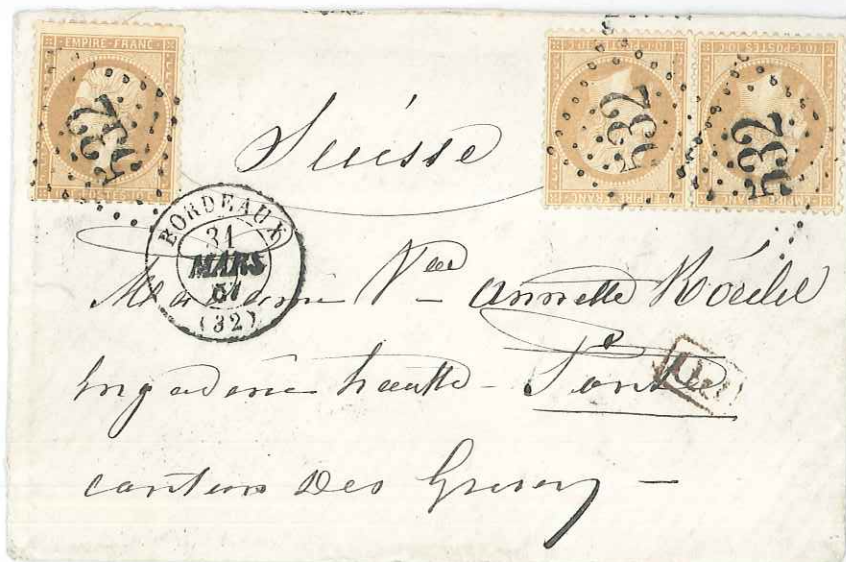 EMPIRE FRANC
532
532
532
Suisse
BORDEAUX
31
MARS
67
(32)
Madame Vve Annette
Engadine haute - Ponte
canton des Grisons -